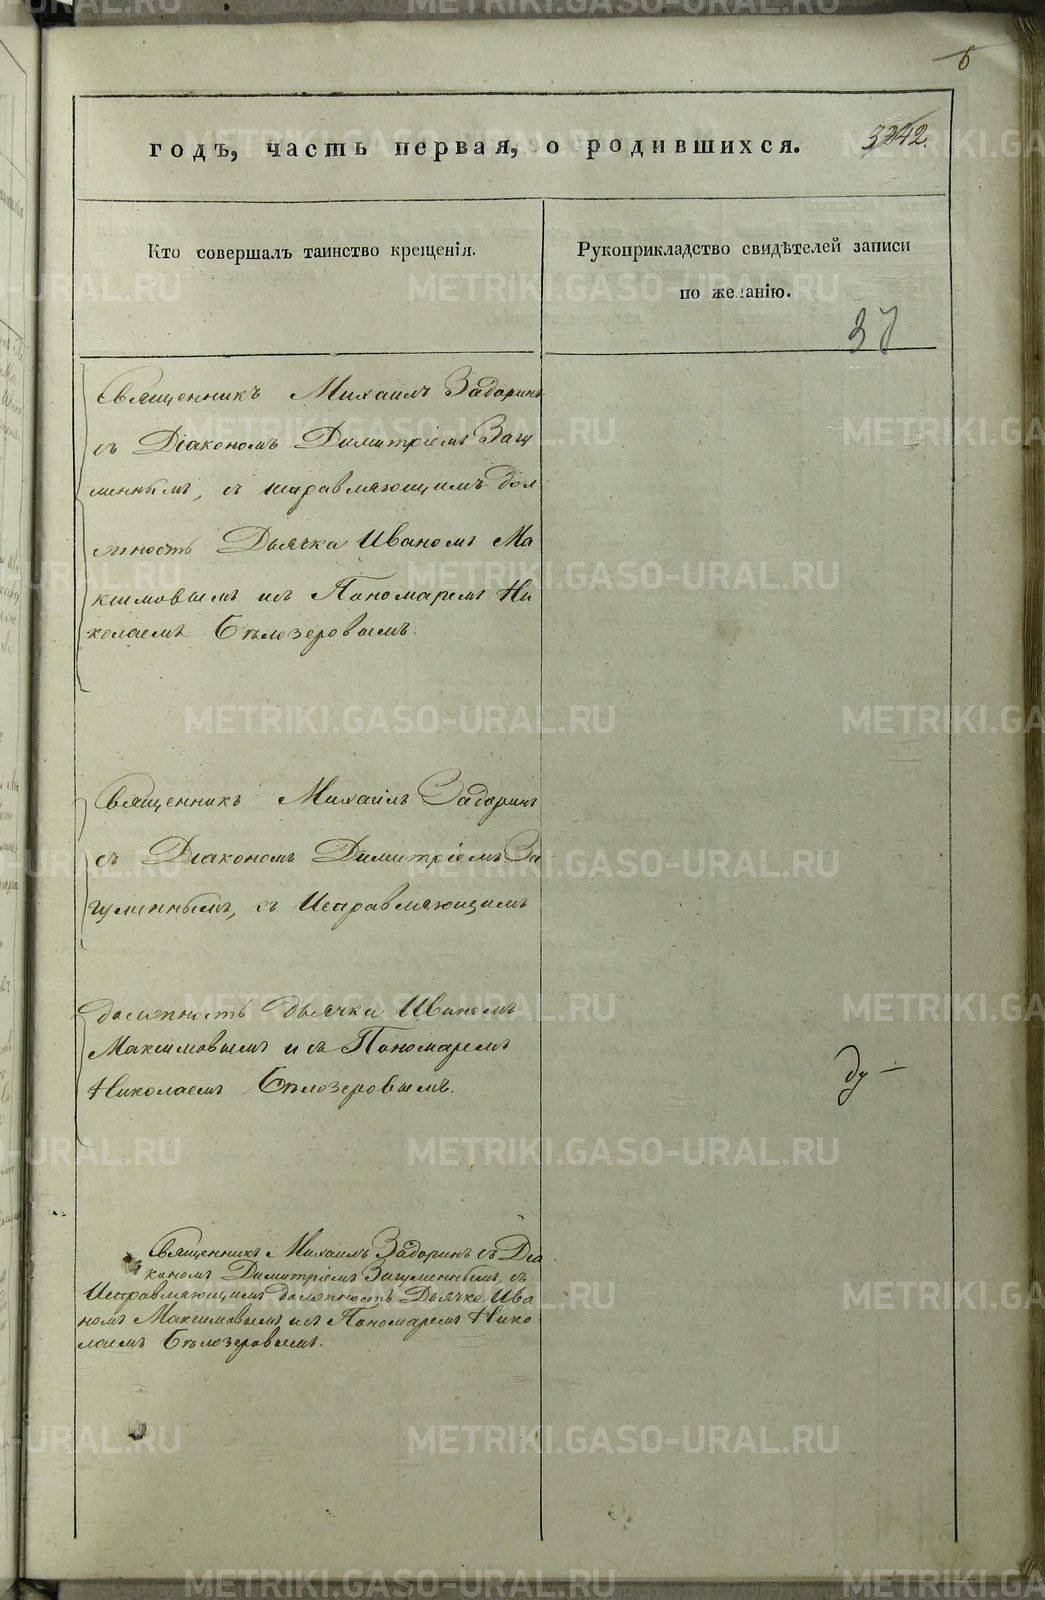 6
годъ, часть первая, о родившихся.
3342.
Кто совершалъ таинство крещенія.
Рукоприкладство свидѣтелей записи
по желанію.
37
Священникъ Михаилъ Задоринъ
съ Діакономъ Димитріемъ Загу
меннымъ, съ исправляющимъ дол
жность Дьячка Иваномъ Ма
ксимовымъ и съ Пономаремъ Ни
колаемъ Бѣлозеровымъ.
Священникъ Михаилъ Задоринъ
съ Діакономъ Димитріемъ За
гуменнымъ, съ Исправляющимъ
должность дьячка Иваномъ
Максимовымъ и съ Пономаремъ
Николаемъ Бѣлозеровымъ.
Священникъ Михаилъ Задоринъ съ Діа
кономъ Димитріемъ Загуменнымъ, съ
Исправляющимъ должность Дьячка Ива
номъ Максимовымъ и съ Пономаремъ Нико
лаемъ Бѣлозеровымъ.
METRIKI.GASO-URAL.RU